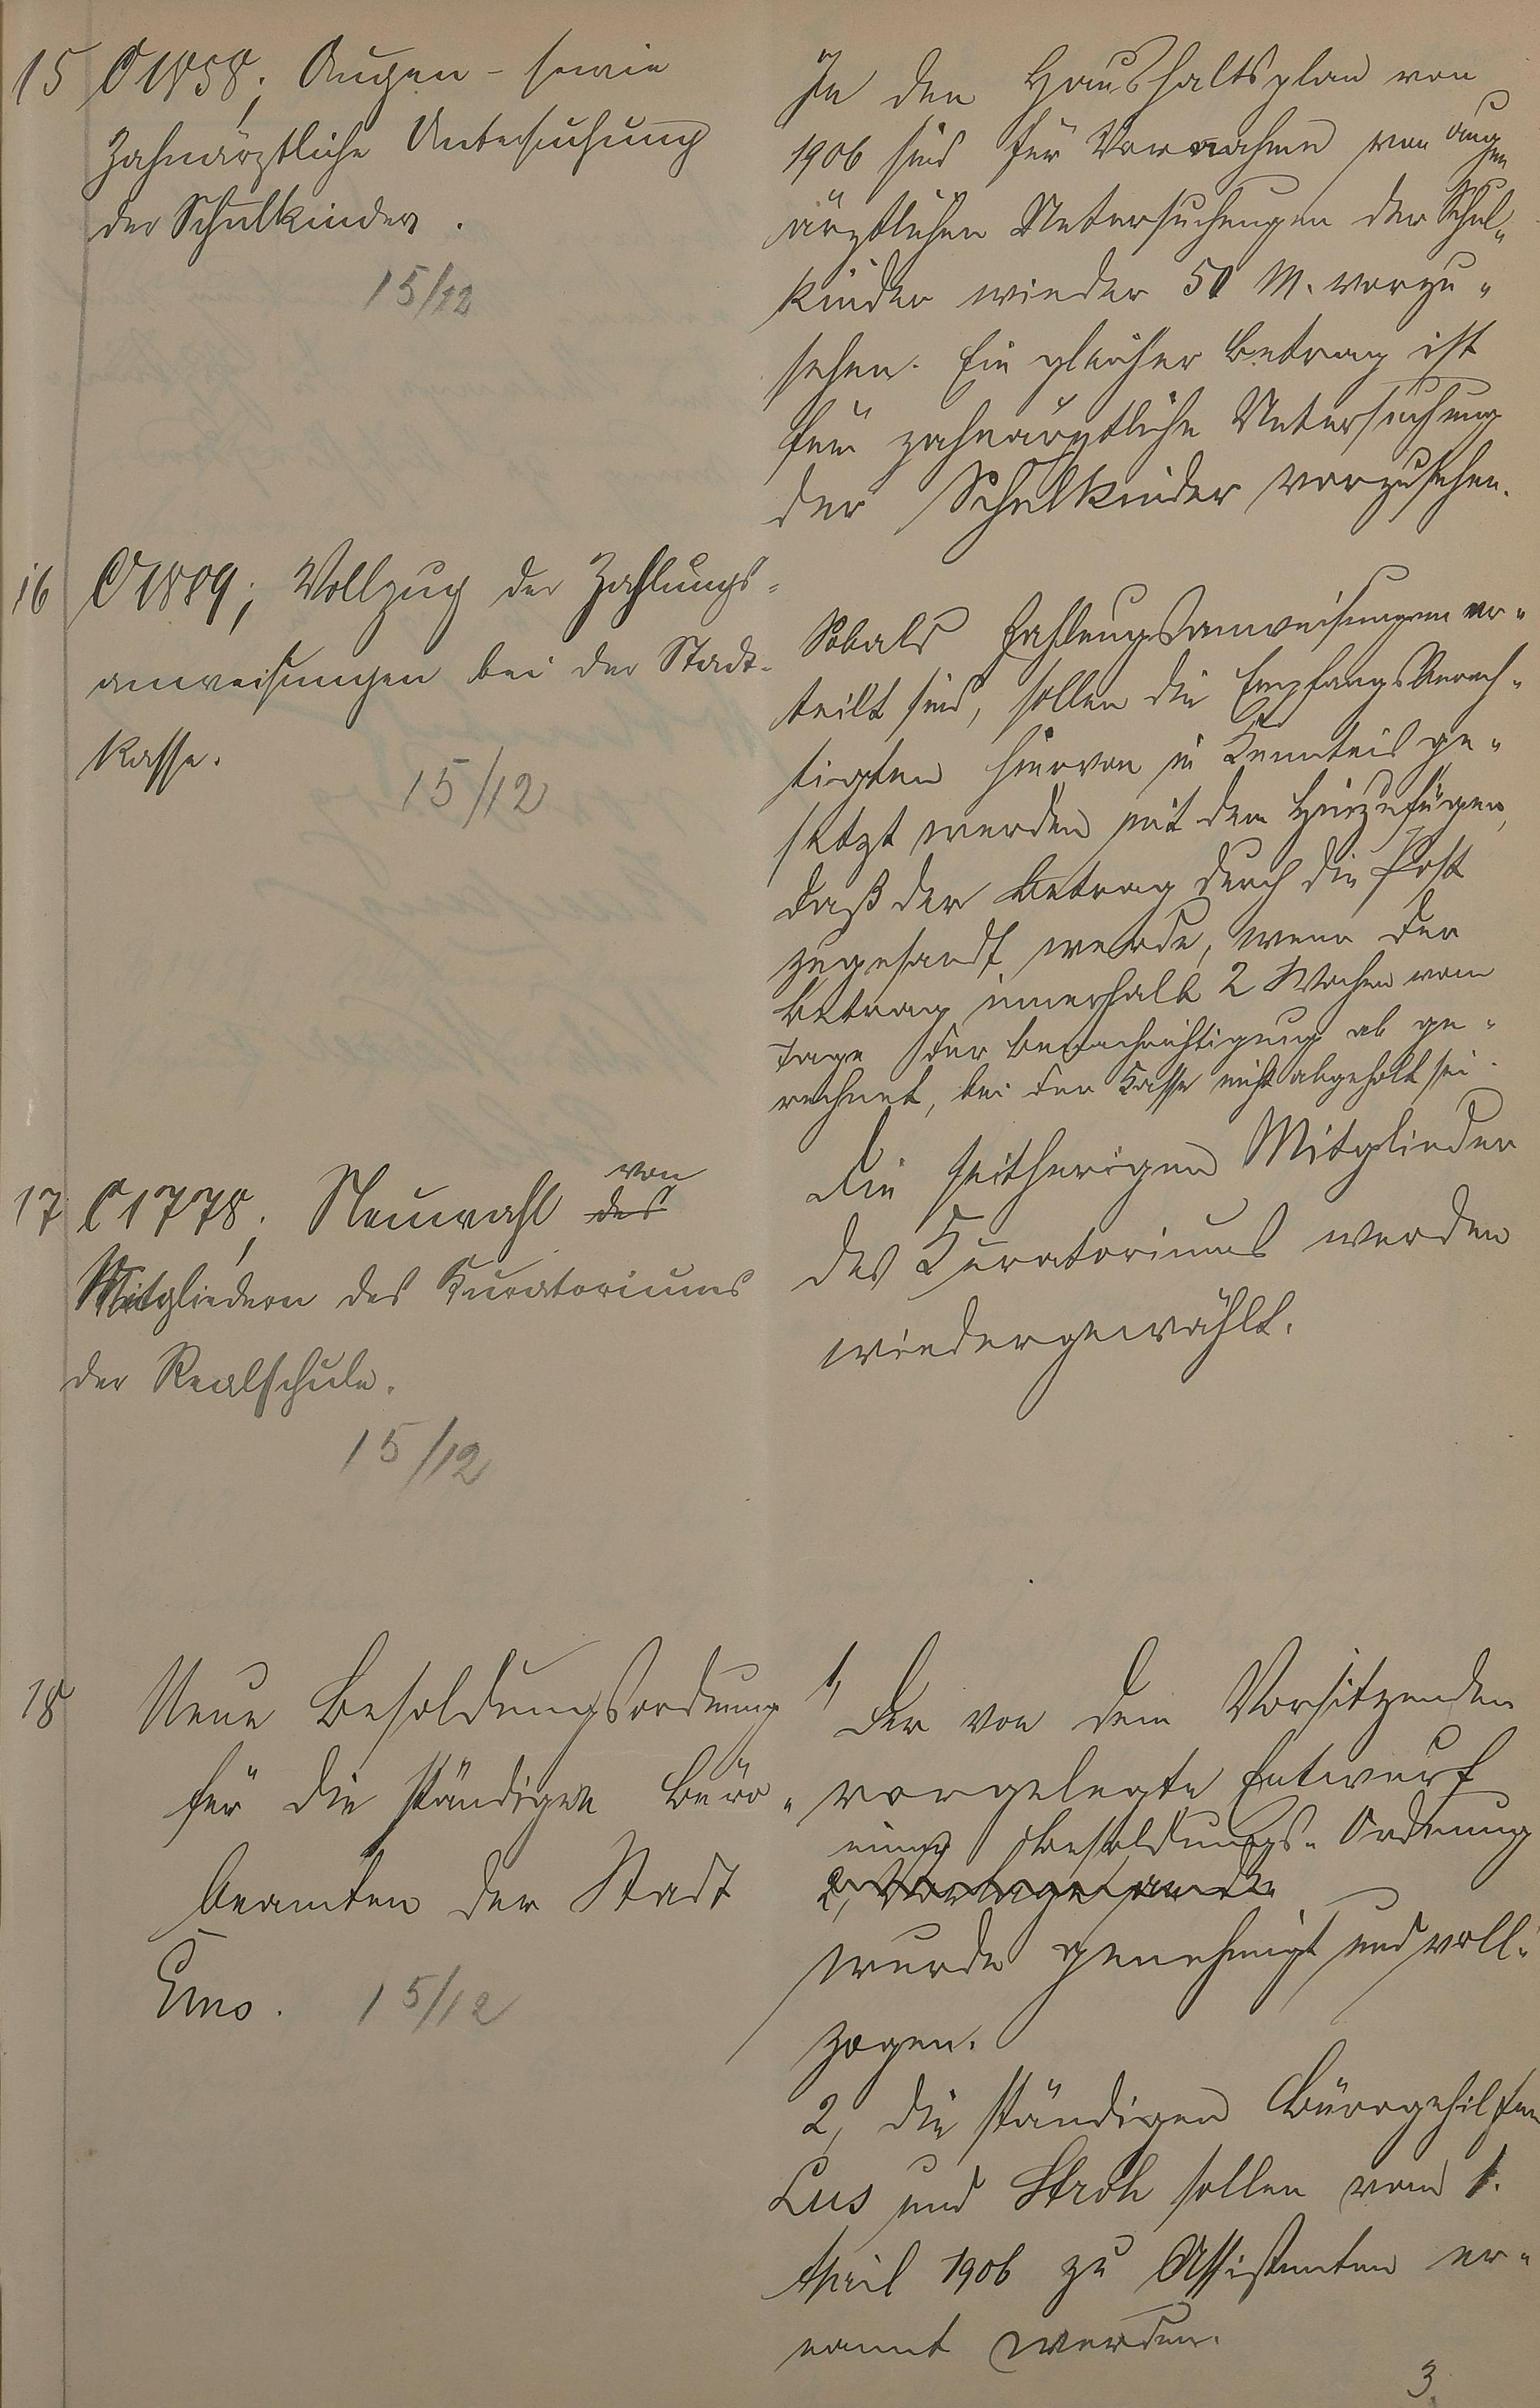 15 C 1858; Augen- sowie
Zahnärztliche Untersuchung
der Schulkinder.
15/12
In den Haushaltsplan von
1906 sind für Vornahme von augen
ärztlichen Untersuchungen der Schul-
kinder wieder 50 M. vorzu-
sehen. Ein gleicher Betrag ist
für zahnärztliche Untersuchung
der Schulkinder vorzusehen.
16 C 1889; Vollzug der Zahlungs-
anweisungen bei der Stadt-
kasse.
15/12
Sobald Zahlungsanweisungen er-
teilt sind, sollen die Empfangsberech-
tigten hiervon in Kenntnis ge-
setzt werden mit dem Hinzufügen,
daß der Betrag durch die Post
zugesandt werde, wenn der
Betrag innerhalb 2 Wochen vom
Tage der Benachrichtigung ab ge-
rechnet, bei der Kasse nicht abgeholt sei.
17 C 1778; Neuwahl des von
Mitgliedern des Kuratoriums
der Realschule.
15/12
Die seitherigen Mitglieder
des Kuratoriums werden
wiedergewählt.
18 Neue Besoldungsordnung
für die ständigen Büro-
beamten der Stadt
Ems. 15/12
1, Der von dem Vorsitzenden
vorgelegte Entwurf
einer Besoldungs-Ordnung
2,
wurde genehmigt und voll-
zogen.
2, die ständigen Bürogehilfen
Lus und Stroh sollen vom 1.
April 1906 zu Assistenten er-
nannt werden.
3.